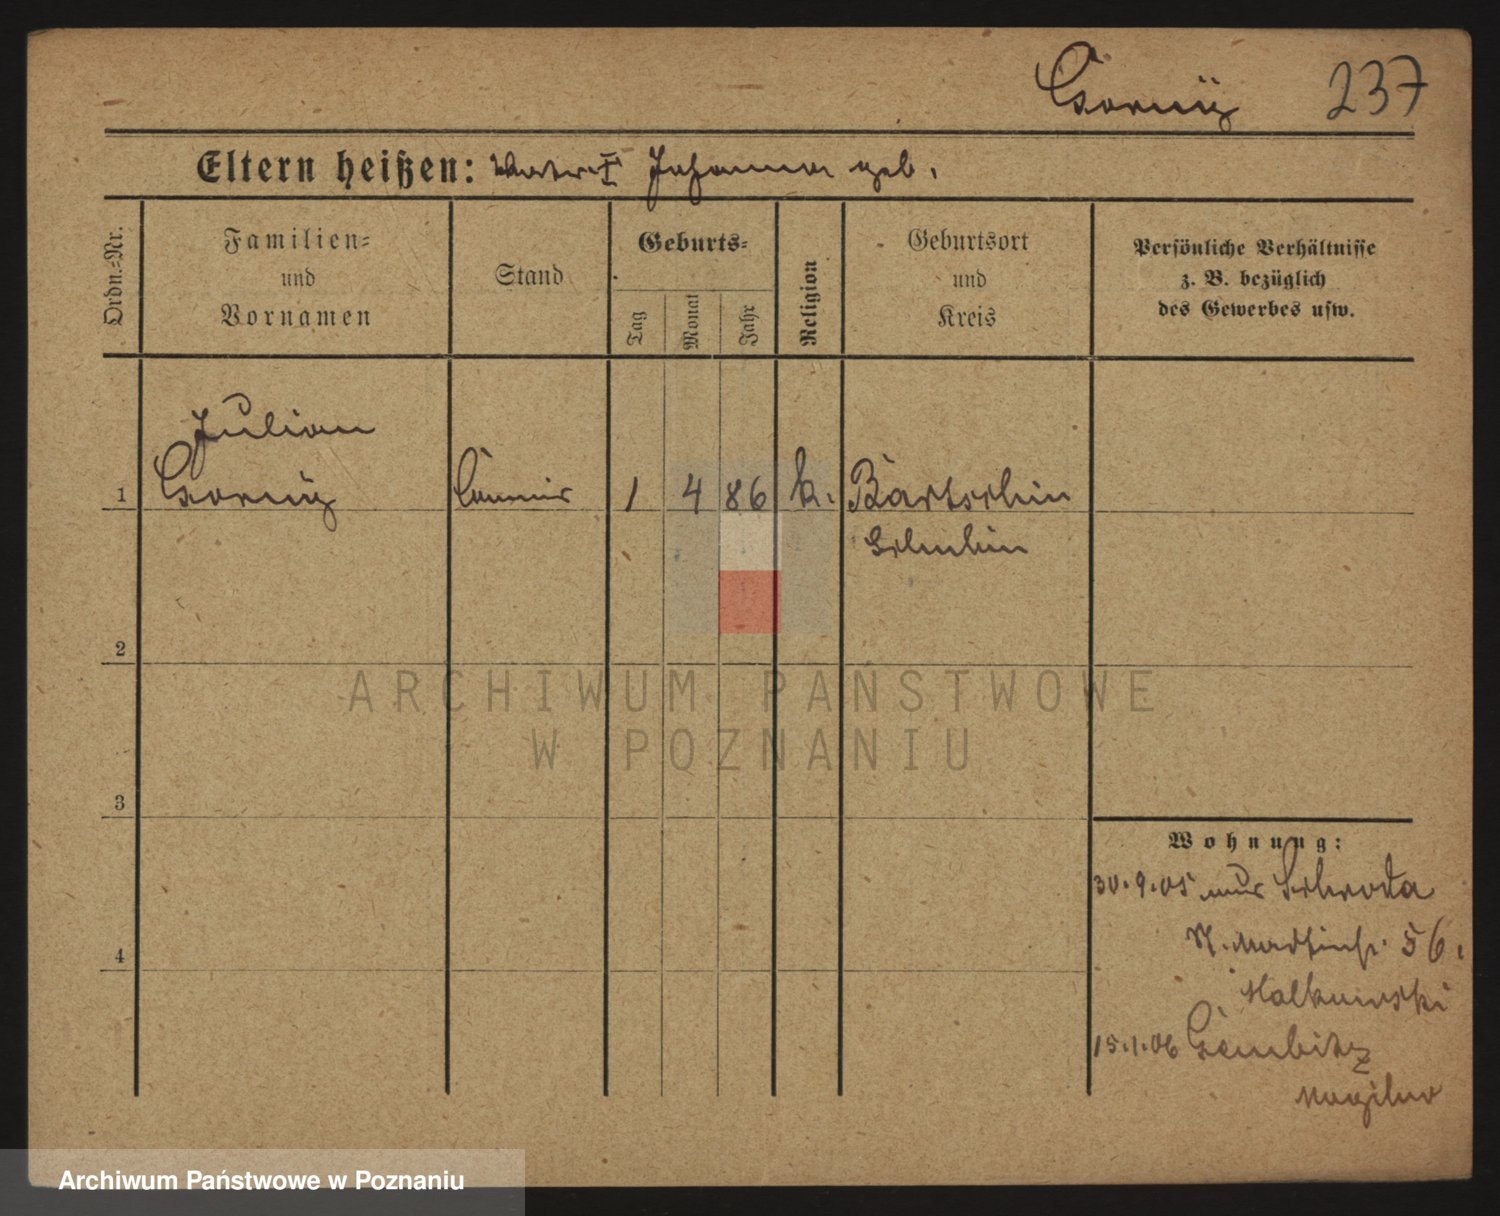 Gornÿ 237
Eltern heißen: Johanna geb.
Ordn.-Nr.
Familien-
und
Vornamen
Stand
Geburts-
Tag
Monat
Jahr
Religion
Geburtsort
und
Kreis
Persönliche Verhältnisse
z. B. bezüglich
des Gewerbes usw.
Julian
1 Gornÿ Commis 1 4 86 k. Bartschin
Schubin
2
ARCHIWUM PAŃSTWOWE
W POZNANIU
3
Wohnung:
30.9.05 aus Schroda
56.
4
15.1.06 Gembitz
Mogilno
Archiwum Państwowe w Poznaniu